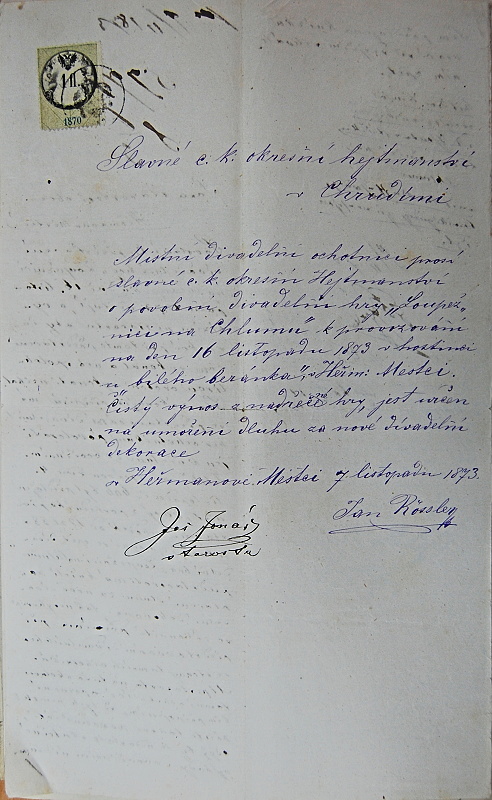 1870
Slavné c. k. okresní hejtmanství
v Chrudimi
Místní divadelní ochotníci prosí
slavné c. k. okresní Hejtmanství
o povolení divadelní hry „Loupež-
níci na Chlumu" k provozování
na den 16 listopadu 1873 v hostinci
u bílého beránka", v Heřm: Městci.
Čistý výnos z nadřečené hry, jest určen
na umoření dluhu za nové divadelní
dekorace
v Heřmanově Městci 7 listopadu 1873.
Jan Rössler
Jos Jonáš
starosta